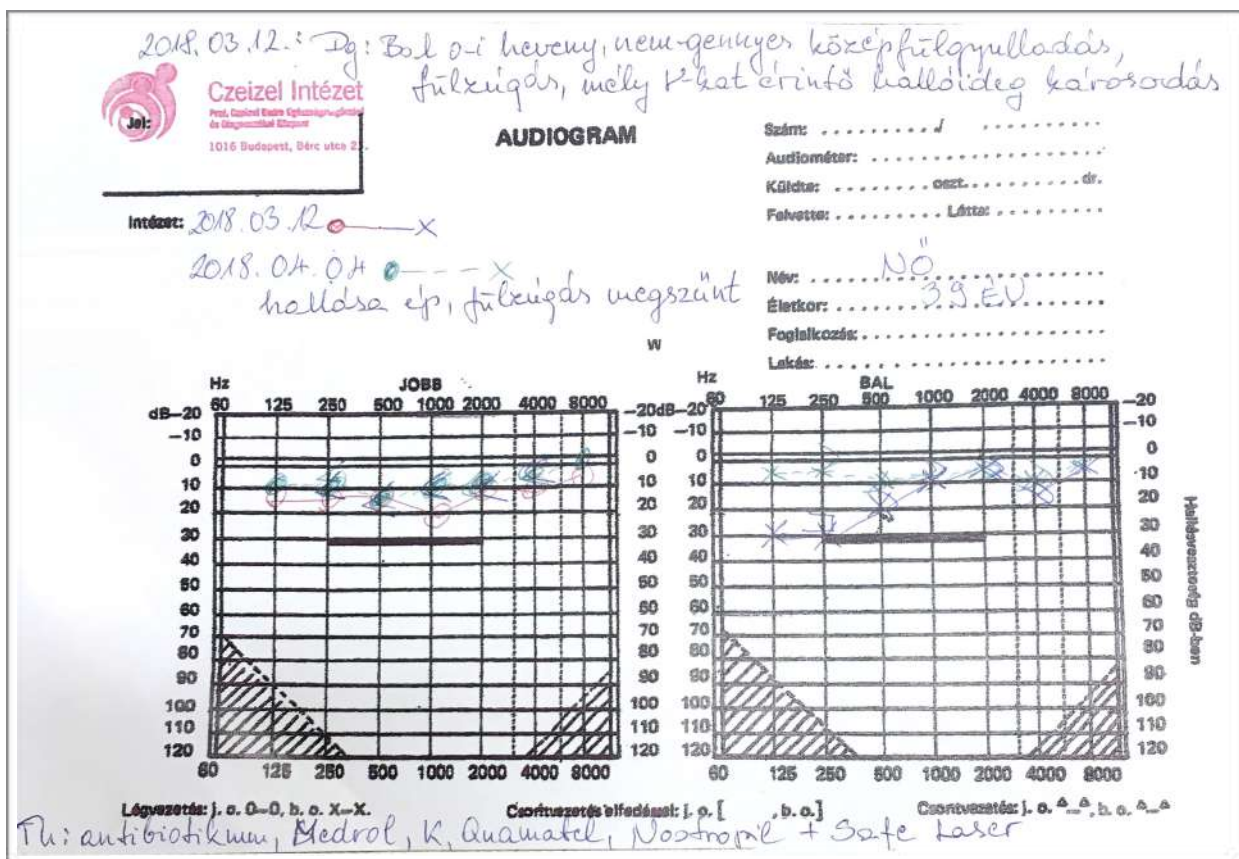 2018.03.12.: Dg: Bal o-i heveny, nem-gennyes középfülgyulladás,
fülzúgás, mély f-kat érintő hallóideg károsodás
Jel:
Czeizel Intézet
Prof. Czeizel Endre
1016 Budapest, Bérc utca 2
AUDIOGRAM
Szám: . . . . . . . . . . / . . . . . . . . . .
Audiométer: . . . . . . . . . . . . . . . . . . . .
Küldte: . . . . . . . . oszt. . . . . . . . . . dr.
Felvette: . . . . . . . . . Látta: . . . . . . . . .
Intézet: 2018.03.12 O——X
2018.04.04 O---X
hallása ép, fülzúgás megszűnt
Név: NŐ
Életkor: 39 ÉV
Foglalkozás: . . . . . . . . . . . . . . . . . .
Lakás: . . . . . . . . . . . . . . . . . . . . .
W
Hz JOBB
60 125 250 500 1000 2000 4000 8000
dB–20 –20
–10 –10
0 0
10 10
20 20
30 30
40 40
50 50
60 60
70 70
80 80
90 90
100 100
110 110
120 120
60 125 250 500 1000 2000 4000 8000
Hz BAL
60 125 250 500 1000 2000 4000 8000
dB–20 –20
–10 –10
0 0
10 10
20 20
30 30
40 40
50 50
60 60
70 70
80 80
90 90
100 100
110 110
120 120
60 125 250 500 1000 2000 4000 8000
Hallásveszteség dB-ben
Légvezetés: j. o. O–O, b. o. X–X.
Csontvezetés elfedéssel: j. o. [ , b. o.]
Csontvezetés: j. o. , b. o.
Th: antibiotikum, Medrol, K, Quamatel, Nootropil + Safe Laser